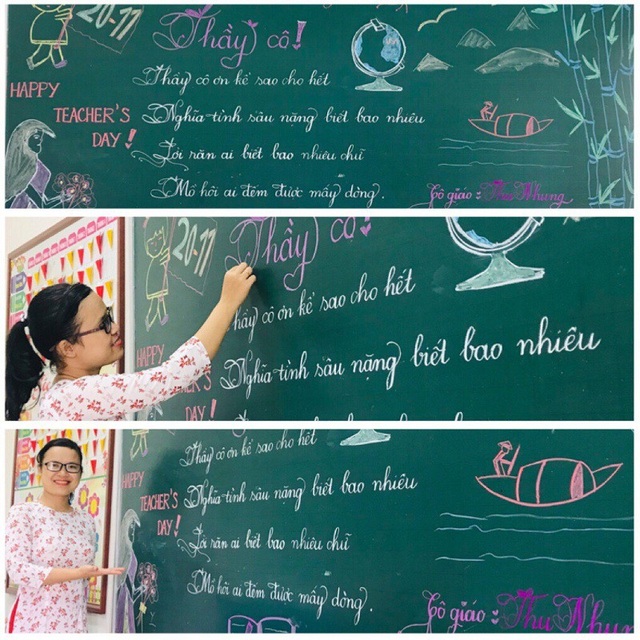 20-11
Thầy cô!
HAPPY
TEACHER'S
DAY!
Thầy cô ơn kể sao cho hết
Nghĩa tình sâu nặng biết bao nhiêu
Lời răn ai biết bao nhiêu chữ
Mồ hôi ai đếm được mấy dòng.
Cô giáo: Thu Nhung
20-11
Thầy cô
Thầy cô ơn kể sao cho hết
HAPPY
Nghĩa tình sâu nặng biết bao nhiêu
DAY!
Thầy cô ơn kể sao cho hết
HAPPY
TEACHER'S
DAY!
Nghĩa tình sâu nặng biết bao nhiêu
Lời răn ai biết bao nhiêu chữ
Mồ hôi ai đếm được mấy dòng.
Cô giáo: Thu Nhung